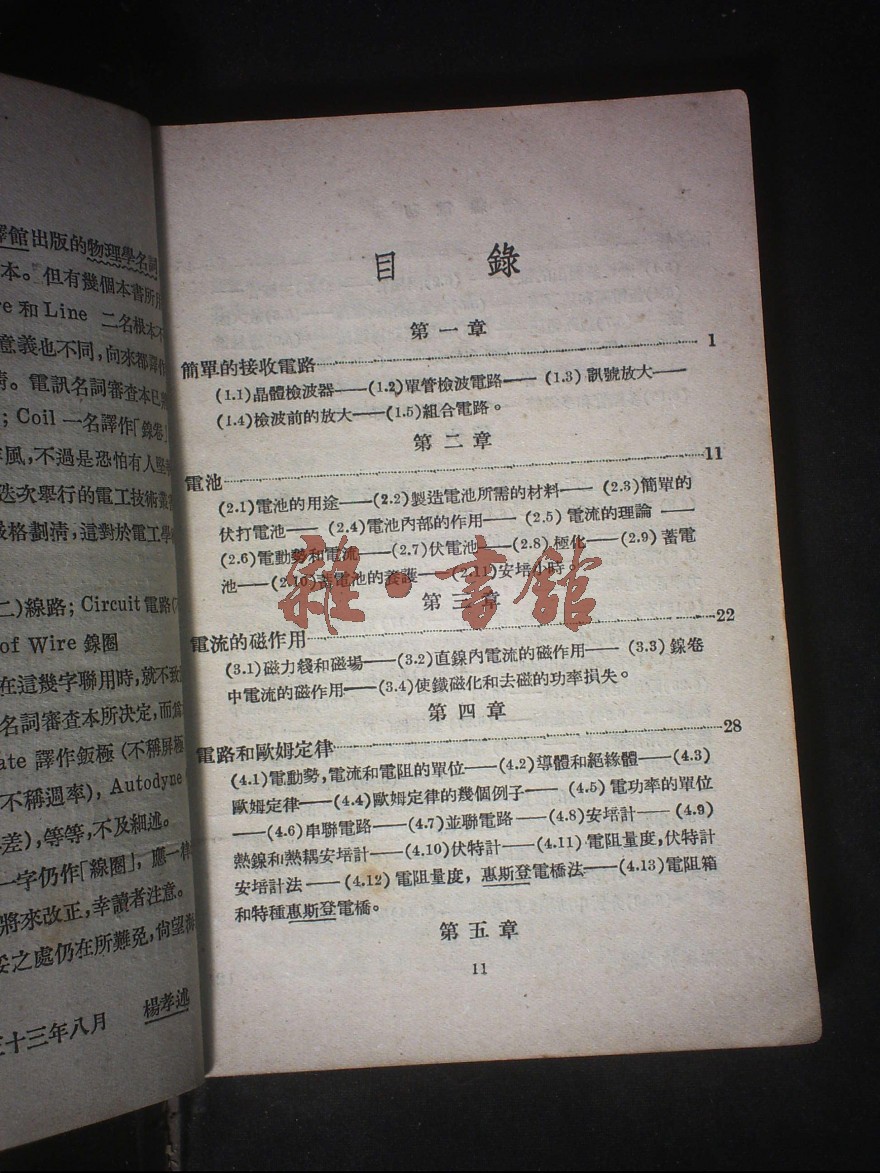 譯館出版的物理學名詞
本。但有幾個本書所用
re 和 Line 二名根本不
意義也不同,向來都譯作
清。電訊名詞審查本已將
; Coil 一名譯作「線卷」
風,不過是恐怕有人堅
迭次舉行的電工技術叢
嚴格劃清,這對於電工學
二)線路; Circuit 電路
of Wire 線圈
在這幾字聯用時,就不致
名詞審查本所決定,而
ate 譯作鈑極 (不稱屏極
不稱週率), Autodyne
差),等等,不及細述。
一字仍作「線圈」, 應一律
將來改正,幸讀者注意。
妥之處仍在所難免,尙望海
三十三年八月 楊孝述
目錄
第一章
簡單的接收電路 1
(1.1)晶體檢波器——(1.2)單管檢波電路——(1.3) 訊號放大——
(1.4)檢波前的放大——(1.5)組合電路。
第二章
電池 11
(2.1)電池的用途——(2.2)製造電池所需的材料——(2.3)簡單的
伏打電池——(2.4)電池內部的作用——(2.5) 電流的理論——
(2.6)電動勢和電流——(2.7)伏電池——(2.8) 極化——(2.9) 蓄電
池——(2.10)蓄電池的養護——(2.11)安培小時。
第三章
電流的磁作用 22
(3.1)磁力綫和磁場——(3.2)直線內電流的磁作用——(3.3) 線卷
中電流的磁作用——(3.4)使鐵磁化和去磁的功率損失。
第四章
電路和歐姆定律 28
(4.1)電動勢,電流和電阻的單位——(4.2)導體和絕緣體——(4.3)
歐姆定律——(4.4)歐姆定律的幾個例子——(4.5) 電功率的單位
——(4.6)串聯電路——(4.7)並聯電路——(4.8)安培計——(4.9)
熱線和熱耦安培計——(4.10)伏特計——(4.11) 電阻量度,伏特計
安培計法——(4.12) 電阻量度, 惠斯登電橋法——(4.13)電阻箱
和特種惠斯登電橋。
第五章
11
雜·書館